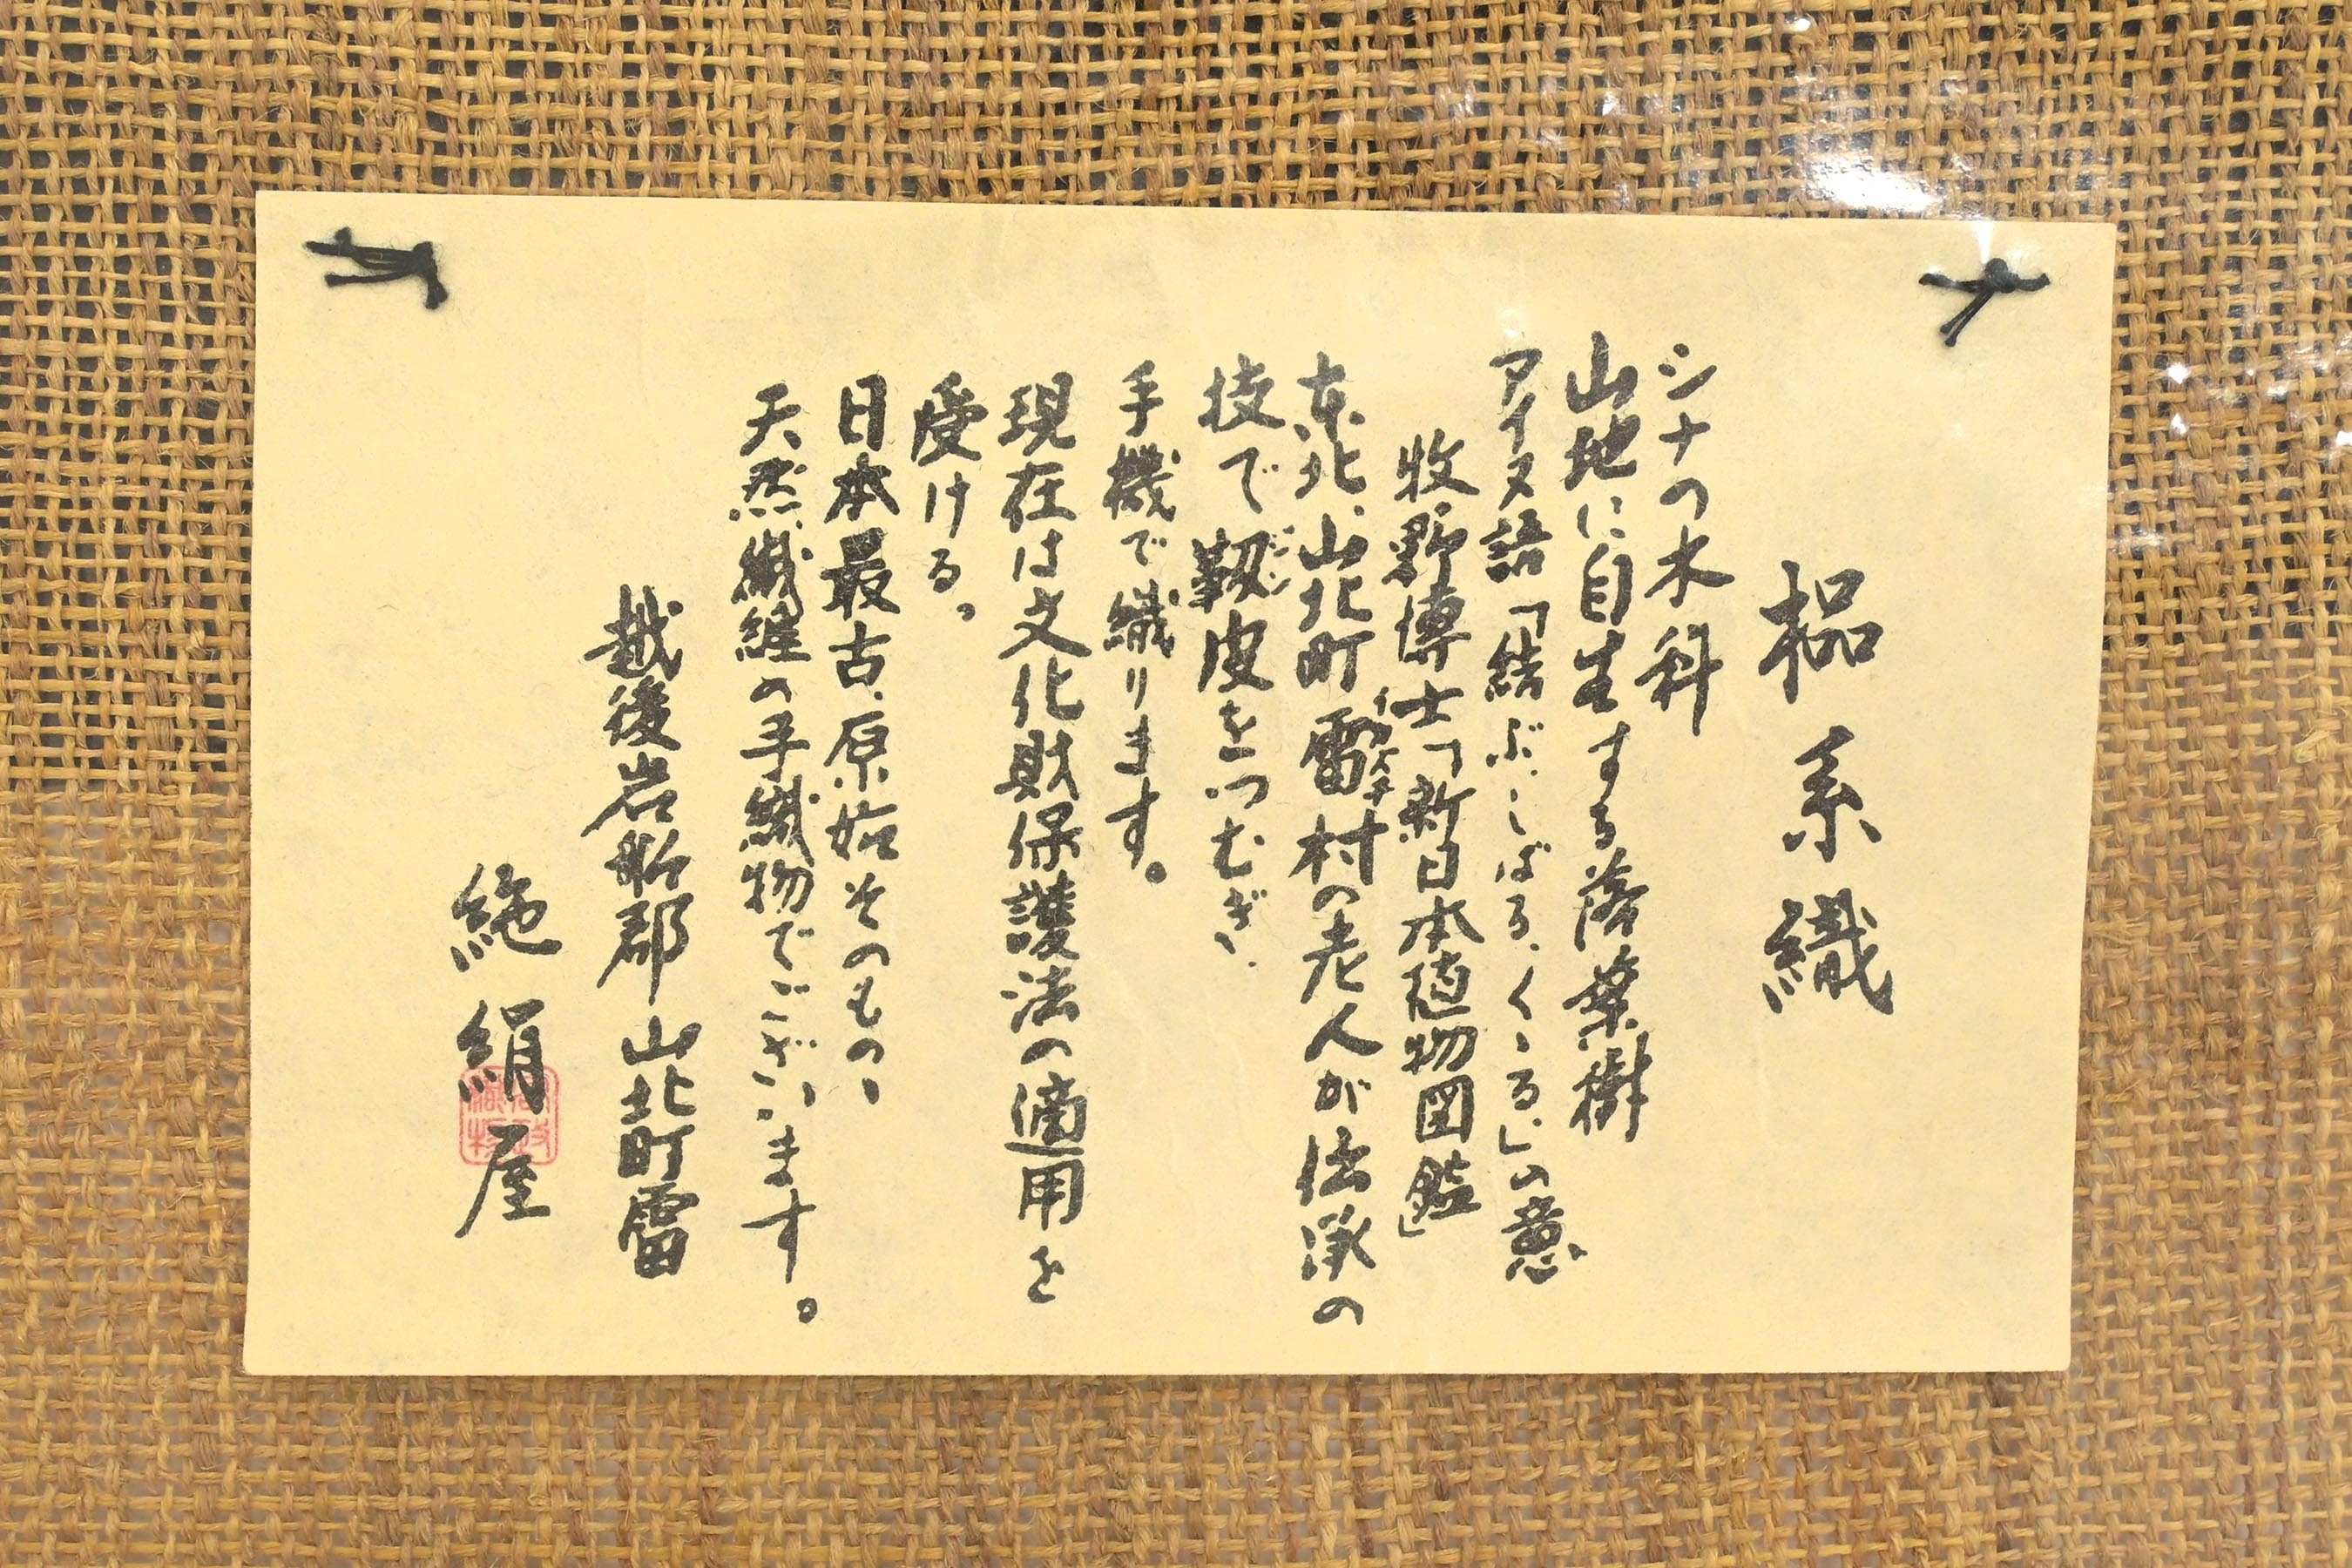 榀糸織
シナの木科
山地に自生する落葉樹
アイヌ語「結ぶ、しばる、くくる」の意
牧野博士「新日本植物図鑑」
東北、山北町雷村の老人が伝承の
イカズチ
技で靱皮をつむぎ、
ジンピ
手機で織ります。
現在は文化財保護法の適用を
受ける。
日本最古、原始そのもの、
天然繊維の手織物でございます。
越後岩船郡山北町雷
絁絹屋